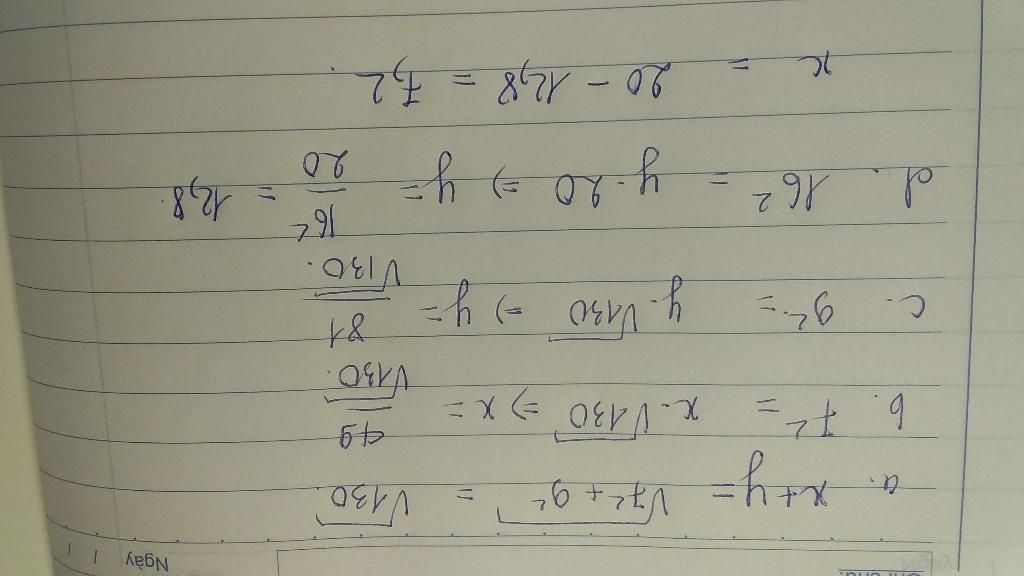 Ngày / /
a. x + y = √(7² + 9²) = √130
b. 7² = x . √130 ⇒ x = 49/√130.
c. 9² = y . √130 ⇒ y = 81/√130.
d. 16² = y . 20 ⇒ y = 16²/20 = 12,8.
x = 20 - 12,8 = 7,2.